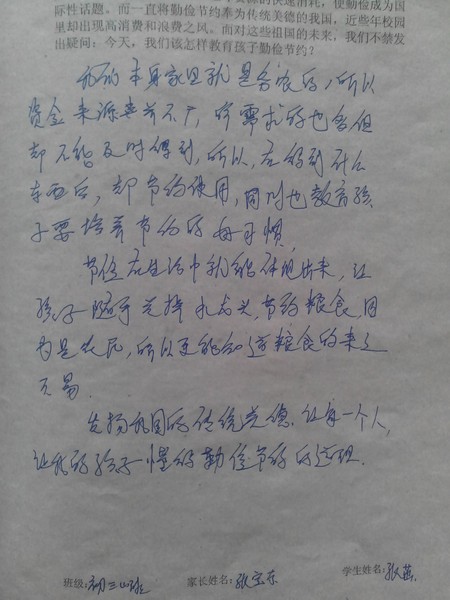 际性话题。而一直将勤俭节约奉为传统美德的我国，近些年校园
里却出现高消费和浪费之风。而对这些祖国的未来，我们不禁发
出疑问：今天，我们该怎样教育孩子勤俭节约？
我的本身家里就是务农的，所以
资金来源并不广，所需求的也多但
却不能及时得到，所以，在得到什么
东西后，却节约使用，同时也教育孩
子要培养节约的好习惯，
节俭在生活中就能体现出来，让
孩子随手关掉水龙头，节约粮食，因
为是农民，所以更能知道粮食的来之
不易。
发扬我国的传统美德，让每一个人，
让我的孩子懂得勤俭节约的道理。
班级：初三 班
家长姓名：张宝东
学生姓名：张燕